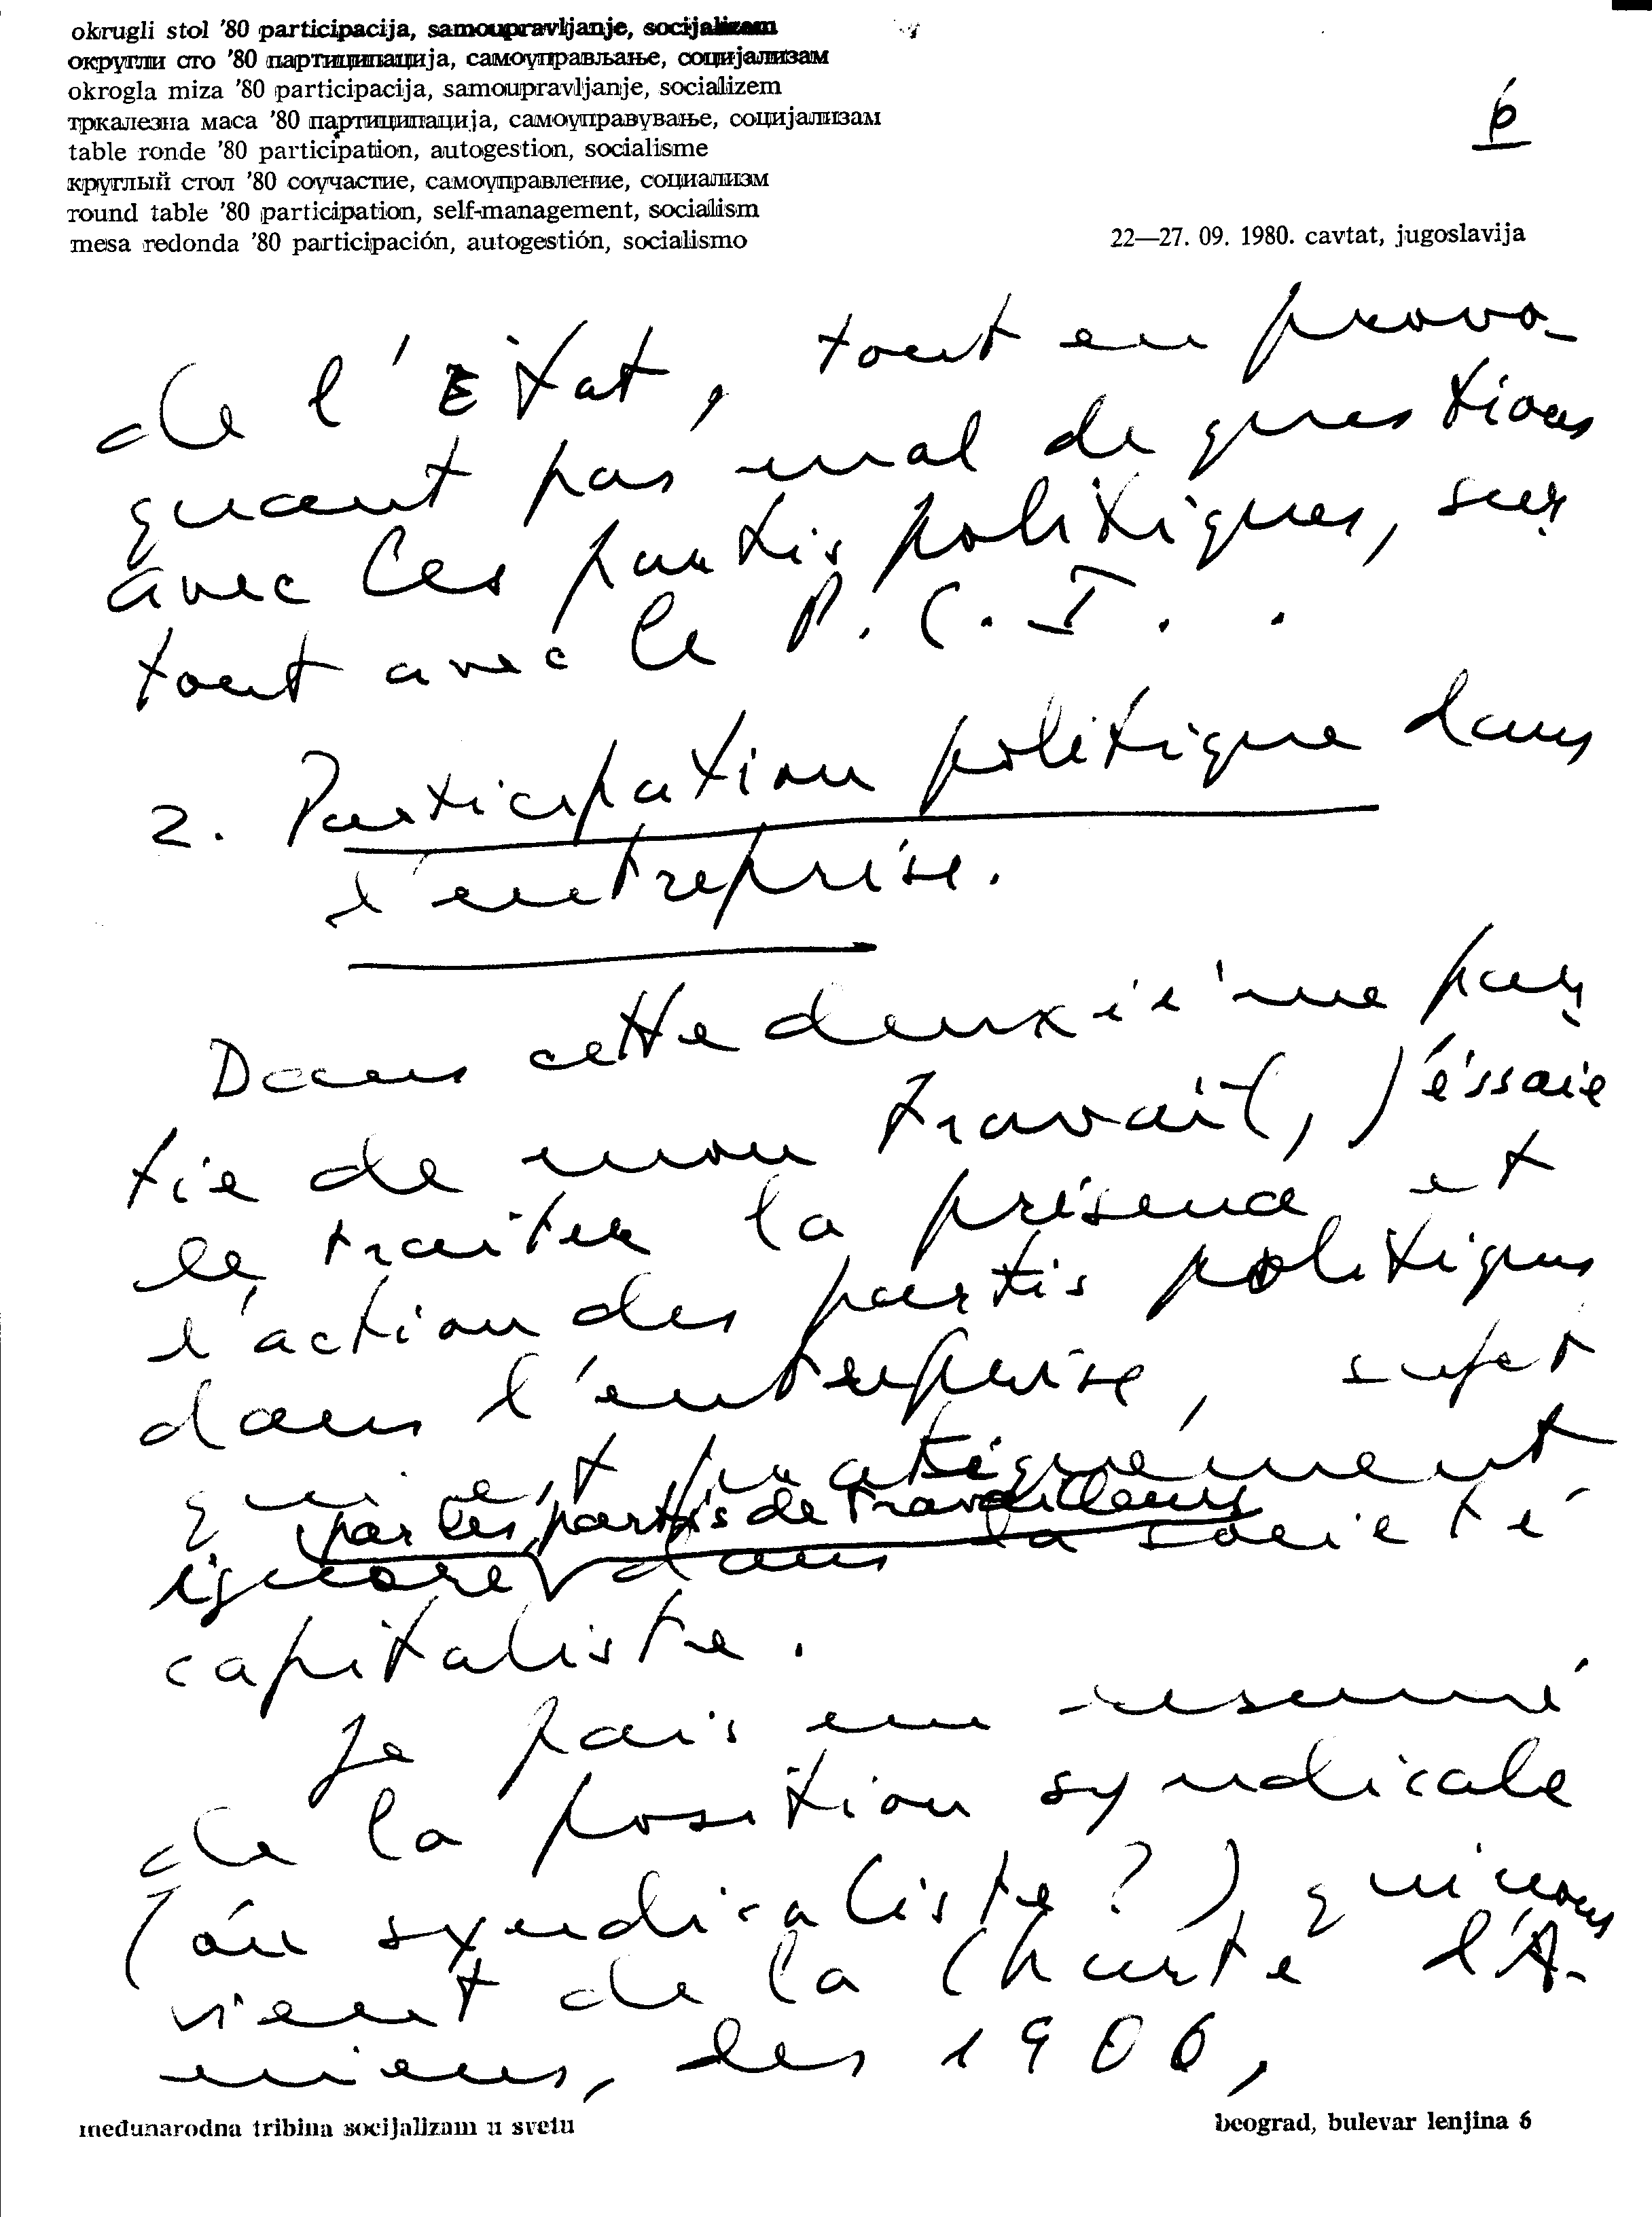 okrugli stol '80 participacija, samoupravljanje, socijalizam
округли сто '80 партиципација, самоуправљање, социјализам
okrogla miza '80 participacija, samoupravljanje, socializem
тркалезна маса '80 партиципација, самоуправување, социјализам
table ronde '80 participation, autogestion, socialisme
круглый стол '80 соучастие, самоуправление, социализм
round table '80 participation, self-management, socialism
mesa redonda '80 participación, autogestión, socialismo
6
22—27. 09. 1980. cavtat, jugoslavija
de l'Etat, tout en provo-
quant pas mal de questions
avec les partis politiques, sur-
tout avec le P.C.I..
2. Participation politique dans
l'entreprise.
Dans cette deuxième par-
tie de mon travail, j'éssaie
de traiter la présence et
l'action des partis politiques
dans l'entreprise, sujet
qui est pratiquement
par les partis de travailleurs
ignoré dans la societé
capitaliste.
Je fais un resumé
de la position syndicale
(ou syndicaliste?) qui nous
vient de la Charte d'A-
miens, des 1906,
međunarodna tribina socijalizam u svetu
beograd, bulevar lenjina 6